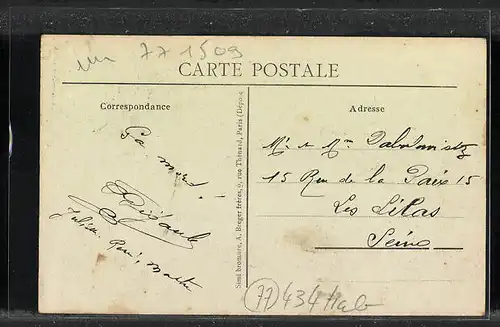 77 1509
CARTE POSTALE
Correspondance
Adresse
Ça mord!
Julien, René, Marthe
Simi bromure, A. Breger frères, 9, rue Thénard, Paris (Dépose
Mr & Mme
15 Rue de la Paix 15
Les Lilas
Seine
77 434